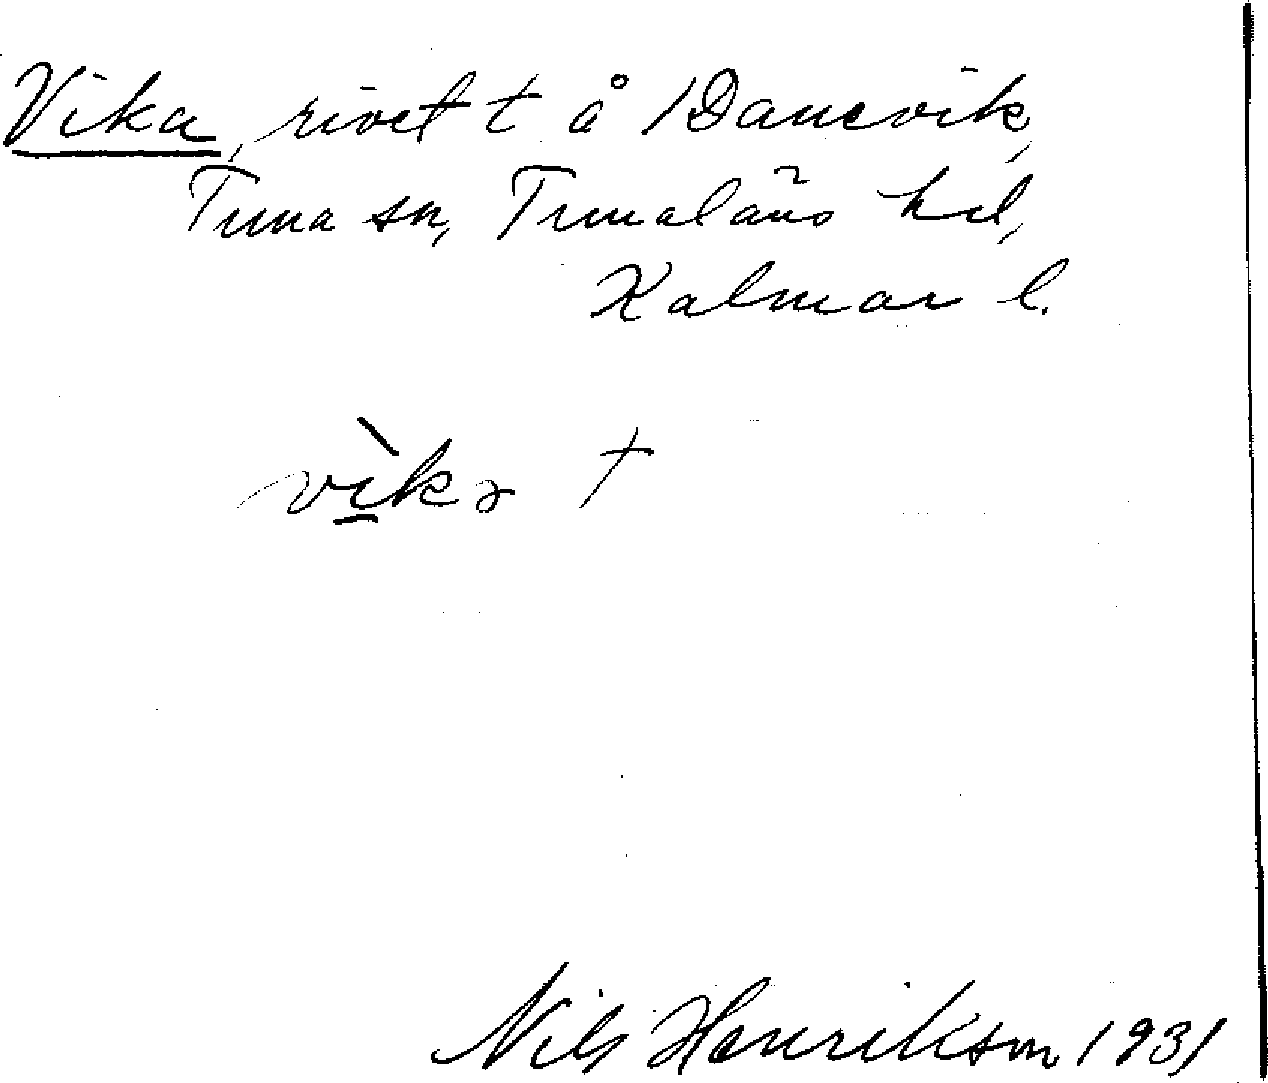 Vika, rivet t å 1 Danevik,
Tuna sn, Tunaläns hd,
Kalmar l.
vìka †
Nils Henrikson 1931